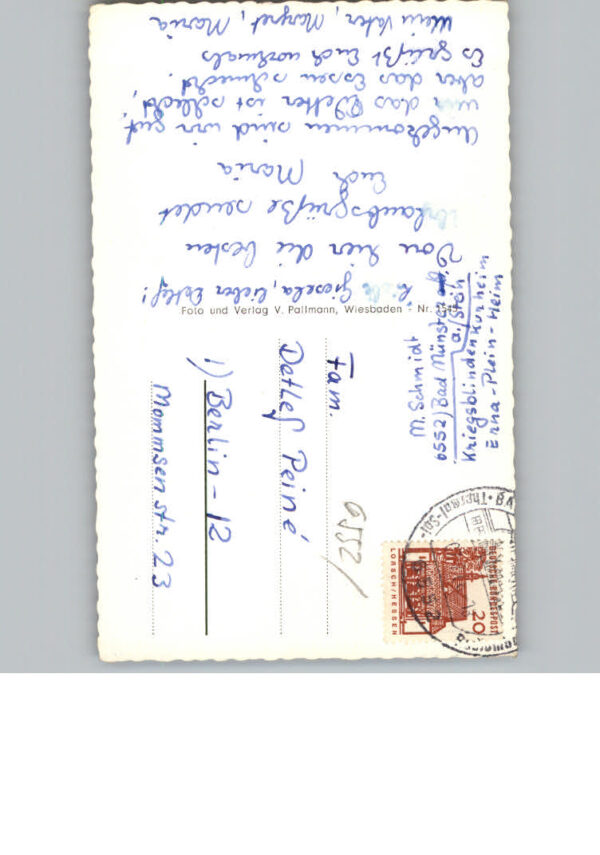 M. Schmidt
6552) Bad Münster
a/Stein
Kriegsblindenkurheim
Erna-Plein-Heim
Liebe Giesela, lieber Detlef!
Von hier die besten
Urlaubsgrüße sendet
Euch Maria
Angekommen sind wir gut,
nur das Wetter ist schlecht,
aber das Essen schmeckt.
Es grüßt Euch nochmals
Mein Vater, Margret, Maria
Foto und Verlag V. Pallmann, Wiesbaden - Nr.
Fam.
Detlef Peiné
1) Berlin-12
Mommsenstr. 23
6552/
DEUTSCHE BUNDESPOST
20
LORSCH/HESSEN
Thermal-Sol-